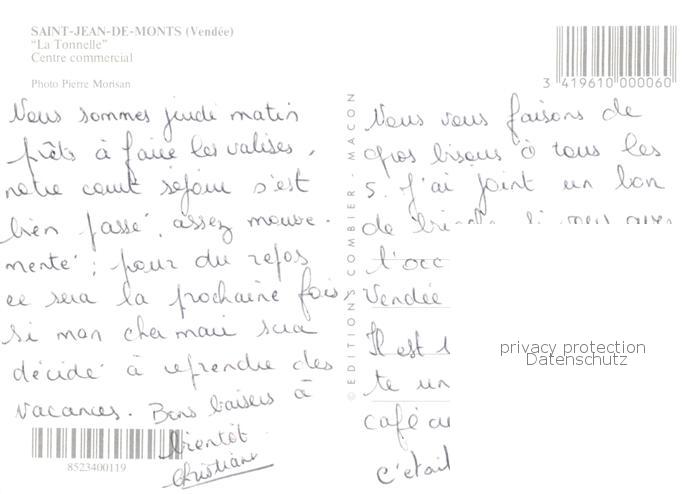 SAINT-JEAN-DE-MONTS (Vendée)
"La Tonnelle"
Centre commercial
Photo Pierre Morisan
3 419610 000060
Nous sommes jeudi matin
prêts à faire les valises,
notre court séjour s'est
bien passé, assez mouve-
menté ; pour du repos
ce sera la prochaine fois,
si mon cher mari sera
décidé à reprendre des
vacances. Bons baisers à
bientôt
Christiane
8523400119
© EDITIONS COMBIER - MACON
Nous vous faisons de
gros bisous à tous les
5. J'ai joint un bon
de si vous avez
l'occ
Vendée
Il est
te un
café au
c'était
privacy protection
Datenschutz